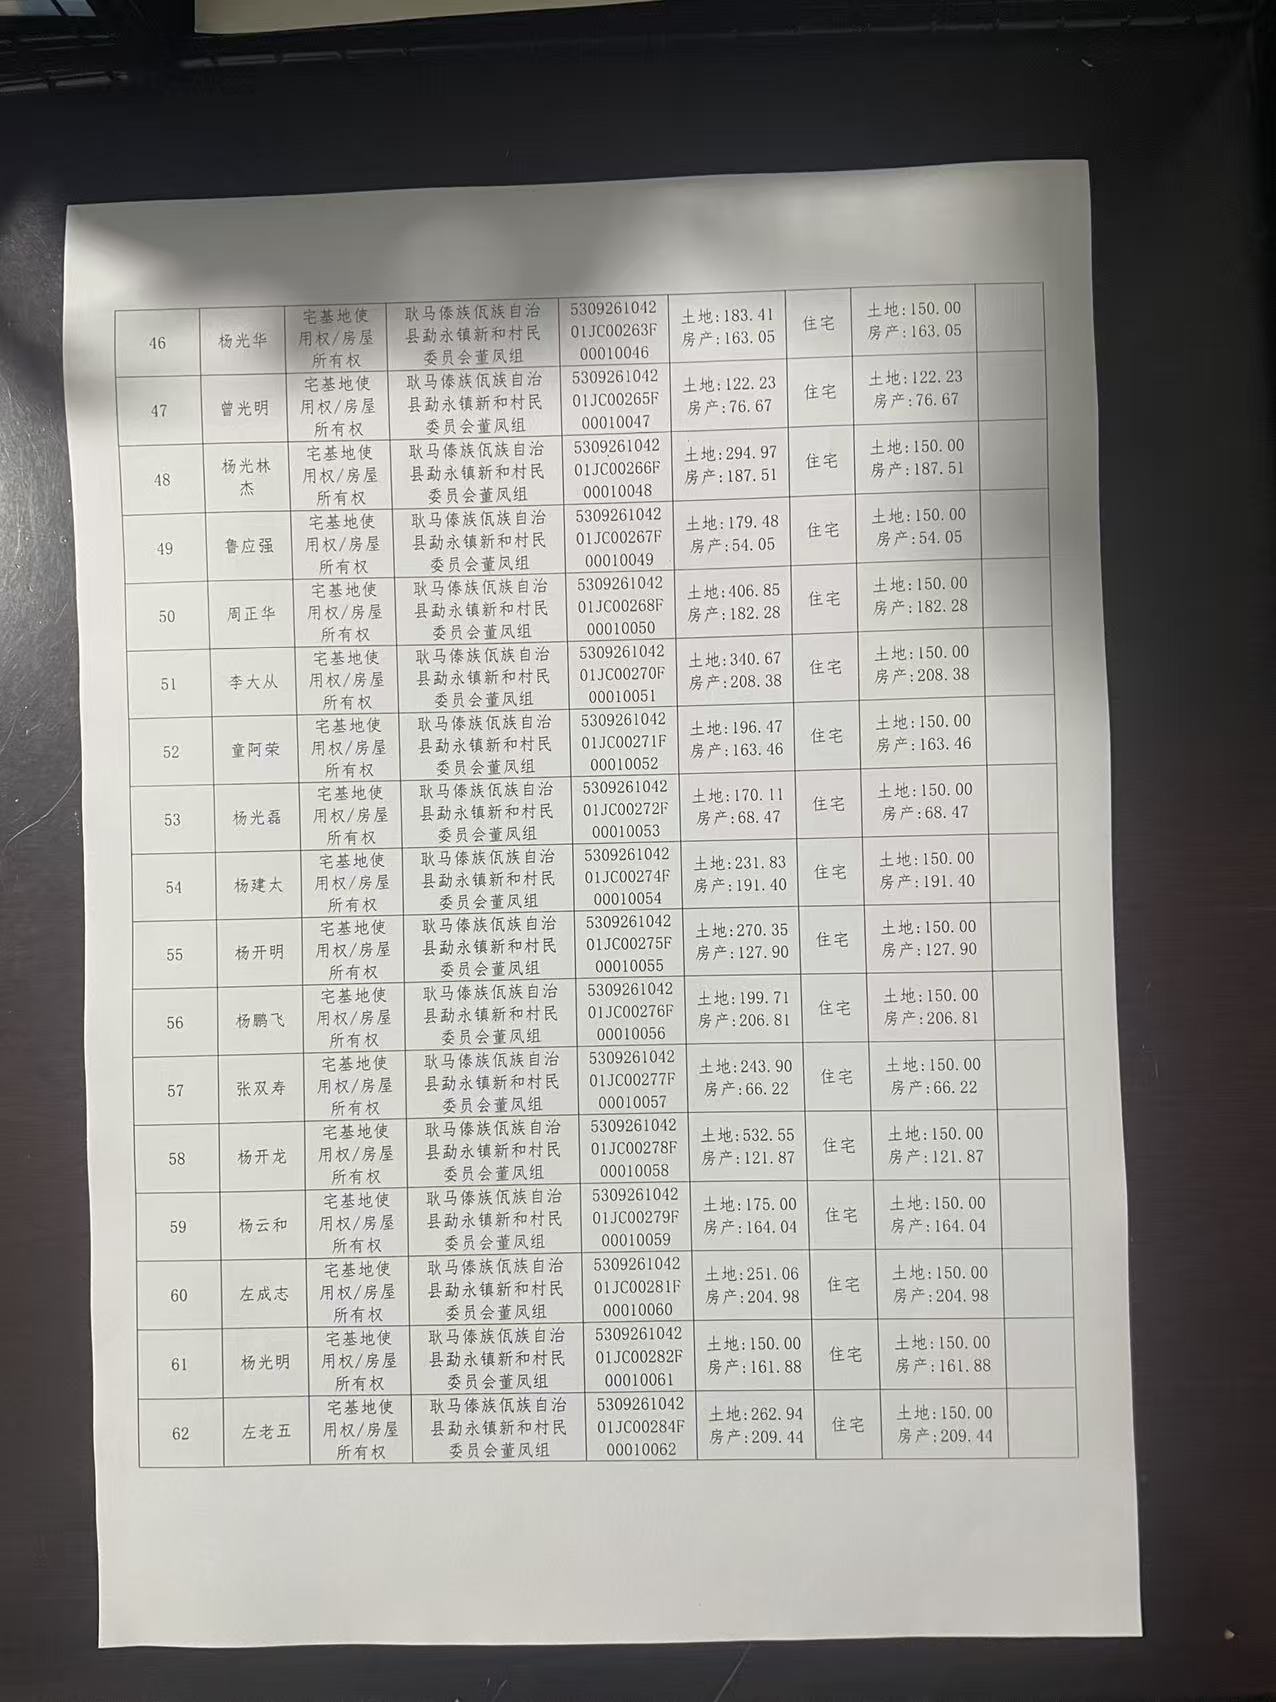 46 杨光华 宅基地使用权/房屋所有权 耿马傣族佤族自治县勐永镇新和村民委员会董凤组 530926104201JC00263F00010046 土地:183.41 房产:163.05 住宅 土地:150.00 房产:163.05
47 曾光明 宅基地使用权/房屋所有权 耿马傣族佤族自治县勐永镇新和村民委员会董凤组 530926104201JC00265F00010047 土地:122.23 房产:76.67 住宅 土地:122.23 房产:76.67
48 杨光林杰 宅基地使用权/房屋所有权 耿马傣族佤族自治县勐永镇新和村民委员会董凤组 530926104201JC00266F00010048 土地:294.97 房产:187.51 住宅 土地:150.00 房产:187.51
49 鲁应强 宅基地使用权/房屋所有权 耿马傣族佤族自治县勐永镇新和村民委员会董凤组 530926104201JC00267F00010049 土地:179.48 房产:54.05 住宅 土地:150.00 房产:54.05
50 周正华 宅基地使用权/房屋所有权 耿马傣族佤族自治县勐永镇新和村民委员会董凤组 530926104201JC00268F00010050 土地:406.85 房产:182.28 住宅 土地:150.00 房产:182.28
51 李大从 宅基地使用权/房屋所有权 耿马傣族佤族自治县勐永镇新和村民委员会董凤组 530926104201JC00270F00010051 土地:340.67 房产:208.38 住宅 土地:150.00 房产:208.38
52 童阿荣 宅基地使用权/房屋所有权 耿马傣族佤族自治县勐永镇新和村民委员会董凤组 530926104201JC00271F00010052 土地:196.47 房产:163.46 住宅 土地:150.00 房产:163.46
53 杨光磊 宅基地使用权/房屋所有权 耿马傣族佤族自治县勐永镇新和村民委员会董凤组 530926104201JC00272F00010053 土地:170.11 房产:68.47 住宅 土地:150.00 房产:68.47
54 杨建太 宅基地使用权/房屋所有权 耿马傣族佤族自治县勐永镇新和村民委员会董凤组 530926104201JC00274F00010054 土地:231.83 房产:191.40 住宅 土地:150.00 房产:191.40
55 杨开明 宅基地使用权/房屋所有权 耿马傣族佤族自治县勐永镇新和村民委员会董凤组 530926104201JC00275F00010055 土地:270.35 房产:127.90 住宅 土地:150.00 房产:127.90
56 杨鹏飞 宅基地使用权/房屋所有权 耿马傣族佤族自治县勐永镇新和村民委员会董凤组 530926104201JC00276F00010056 土地:199.71 房产:206.81 住宅 土地:150.00 房产:206.81
57 张双寿 宅基地使用权/房屋所有权 耿马傣族佤族自治县勐永镇新和村民委员会董凤组 530926104201JC00277F00010057 土地:243.90 房产:66.22 住宅 土地:150.00 房产:66.22
58 杨开龙 宅基地使用权/房屋所有权 耿马傣族佤族自治县勐永镇新和村民委员会董凤组 530926104201JC00278F00010058 土地:532.55 房产:121.87 住宅 土地:150.00 房产:121.87
59 杨云和 宅基地使用权/房屋所有权 耿马傣族佤族自治县勐永镇新和村民委员会董凤组 530926104201JC00279F00010059 土地:175.00 房产:164.04 住宅 土地:150.00 房产:164.04
60 左成志 宅基地使用权/房屋所有权 耿马傣族佤族自治县勐永镇新和村民委员会董凤组 530926104201JC00281F00010060 土地:251.06 房产:204.98 住宅 土地:150.00 房产:204.98
61 杨光明 宅基地使用权/房屋所有权 耿马傣族佤族自治县勐永镇新和村民委员会董凤组 530926104201JC00282F00010061 土地:150.00 房产:161.88 住宅 土地:150.00 房产:161.88
62 左老五 宅基地使用权/房屋所有权 耿马傣族佤族自治县勐永镇新和村民委员会董凤组 530926104201JC00284F00010062 土地:262.94 房产:209.44 住宅 土地:150.00 房产:209.44